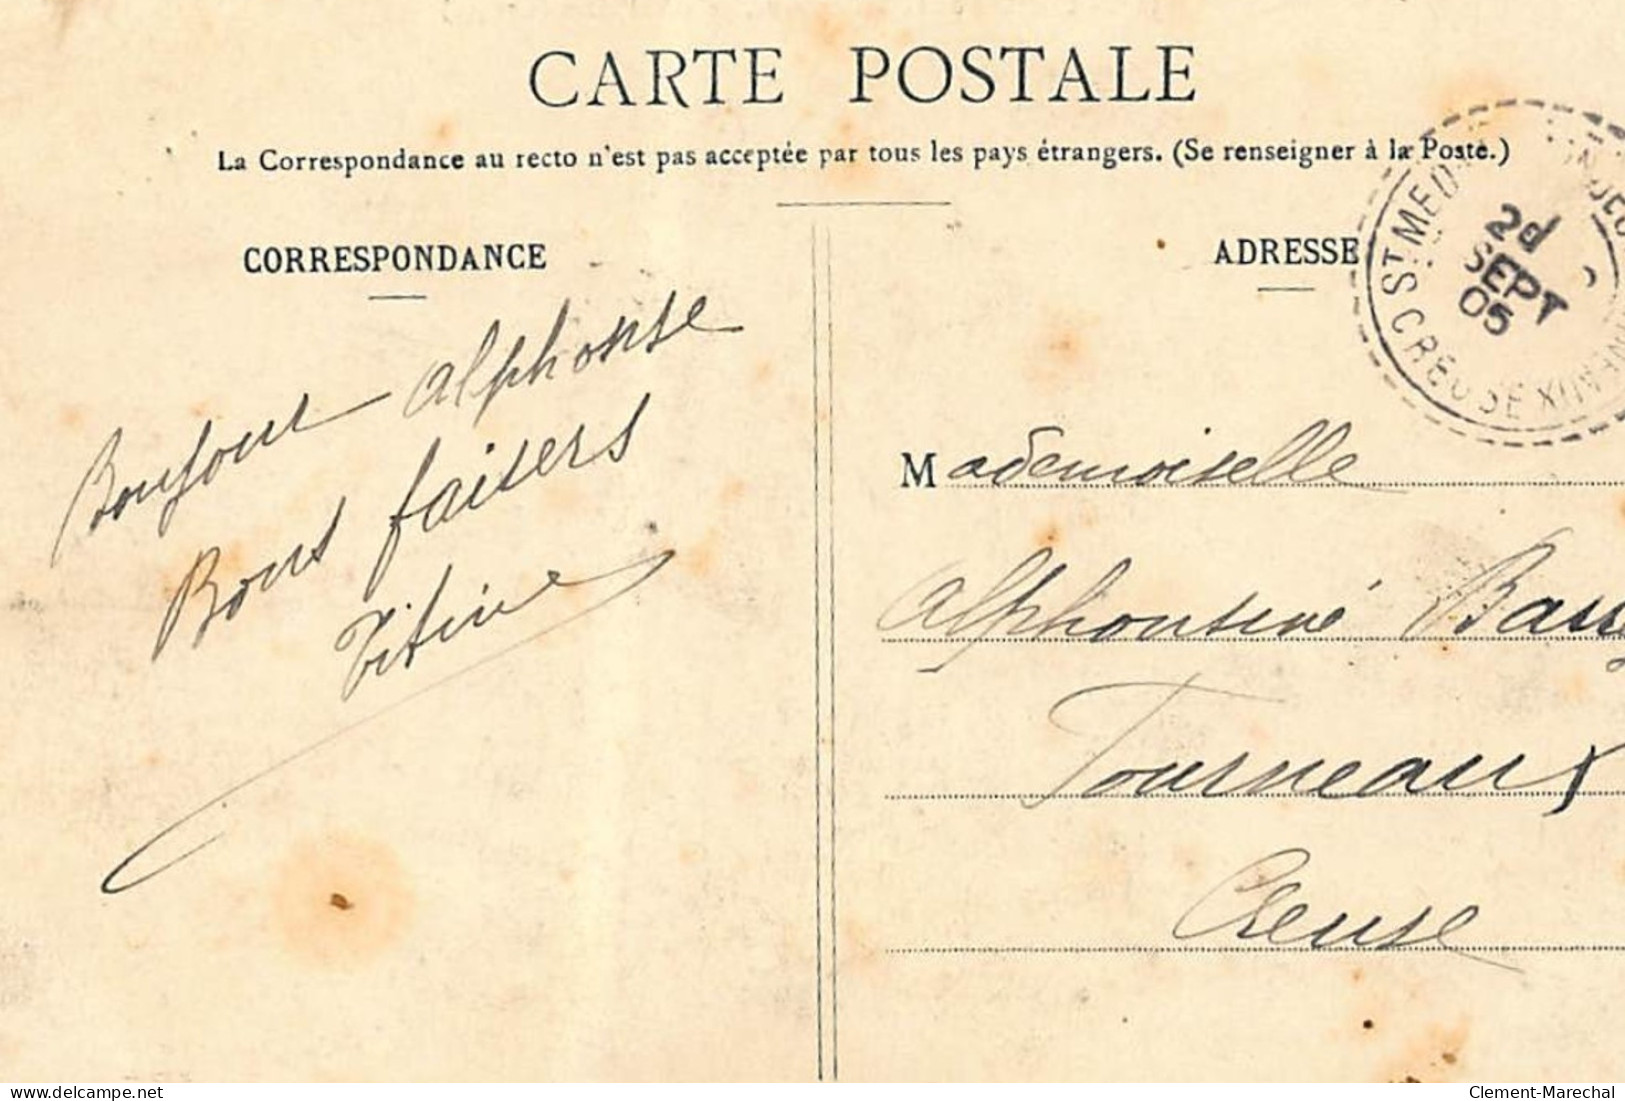 CARTE POSTALE
La Correspondance au recto n'est pas acceptée par tous les pays étrangers. (Se renseigner à la Poste.)
CORRESPONDANCE
ADRESSE
2d
SEPT
05
ST MED
CREUSE
Bonjour Alphonse
Bons baisers
Titine
Mademoiselle
Alphonsine
Tourneaux
Creuse
delcampe.net
Clement-Marechal